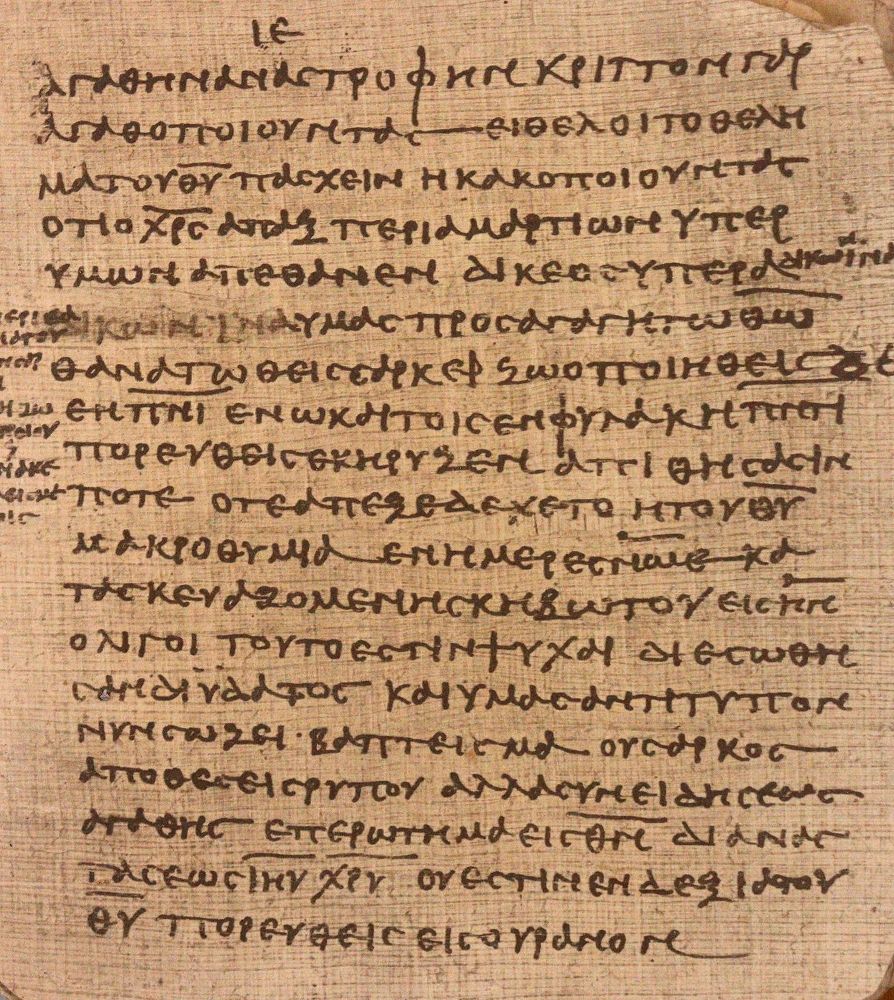 ΙΕ
ΑΓΑΘΗΝ ΑΝΑΣΤΡΟΦΗΝ ΚΡΙΤΤΟΝ ΓΑΡ
ΑΓΑΘΟΠΟΙΟΥΝΤΑС ΕΙ ΘΕΛΟΙ ΤΟ ΘΕΛΗ
ΜΑ ΤΟΥ Θ̅Υ̅ ΠΑСΧΕΙΝ Η ΚΑΚΟΠΟΙΟΥΝΤΑС
ΟΤΙ Ο Χ̅Ρ̅С̅ ΑΠΑΞ ΠΕΡΙ ΑΜΑΡΤΙΩΝ ΥΠΕΡ
ΥΜΩΝ ΑΠΕΘΑΝΕΝ ΔΙΚΕΟС ΥΠΕΡ
ΥΜΑС ΠΡΟСΑΓΑΓΗ ΤΩ Θ̅Ω̅
ΘΑΝΑΤΩΘΕΙС СΑΡΚΕΙ ΖΩΟΠΟΙΗΘΕΙС ΔΕ
ΕΝ Π̅Ν̅Ι̅ ΕΝ Ω ΚΑΙ ΤΟΙС ΕΝ ΦΥΛΑΚΗ
ΠΟΡΕΥΘΕΙС ΕΚΗΡΥΞΕΝ ΑΠΙΘΗСΑСΙΝ
ΠΟΤΕ ΟΤΕ ΑΠΕΞΕΔΕΧΕΤΟ Η ΤΟΥ Θ̅Υ̅
ΜΑΚΡΟΘΥΜΙΑ ΕΝ ΗΜΕΡΕС ΝΩΕ ΚΑ
ΤΑСΚΕΥΑΖΟΜΕΝΗС ΚΗΒΩΤΟΥ ΕΙС ΗΝ
ΟΛΙΓΟΙ ΤΟΥΤΟ ΕСΤΙΝ ΨΥΧΑΙ ΔΙΕСΩΘΗ
СΑΝ ΔΙ ΥΔΑΤΟС ΚΑΙ ΥΜΑС ΑΝΤΙΤΥΠΟΝ
ΝΥΝ СΩΖΕΙ · ΒΑΠΤΕΙСΜΑ ΟΥ СΑΡΚΟС
ΑΠΟΘΕСΕΙС ΡΥΠΟΥ ΑΛΛΑ СΥΝΕΙΔΗСΕΩС
ΑΓΑΘΗС ΕΠΕΡΩΤΗΜΑ ΕΙС Θ̅Ν̅ ΔΙ ΑΝΑС
ΤΑСΕΩС Ι̅Η̅Υ̅ Χ̅Ρ̅Υ̅ ΟΥ ΕСΤΙΝ ΕΝ ΔΕΞΙΑ ΤΟΥ
Θ̅Υ̅ ΠΟΡΕΥΘΕΙС ΕΙС ΟΥΡΑΝΟΝ